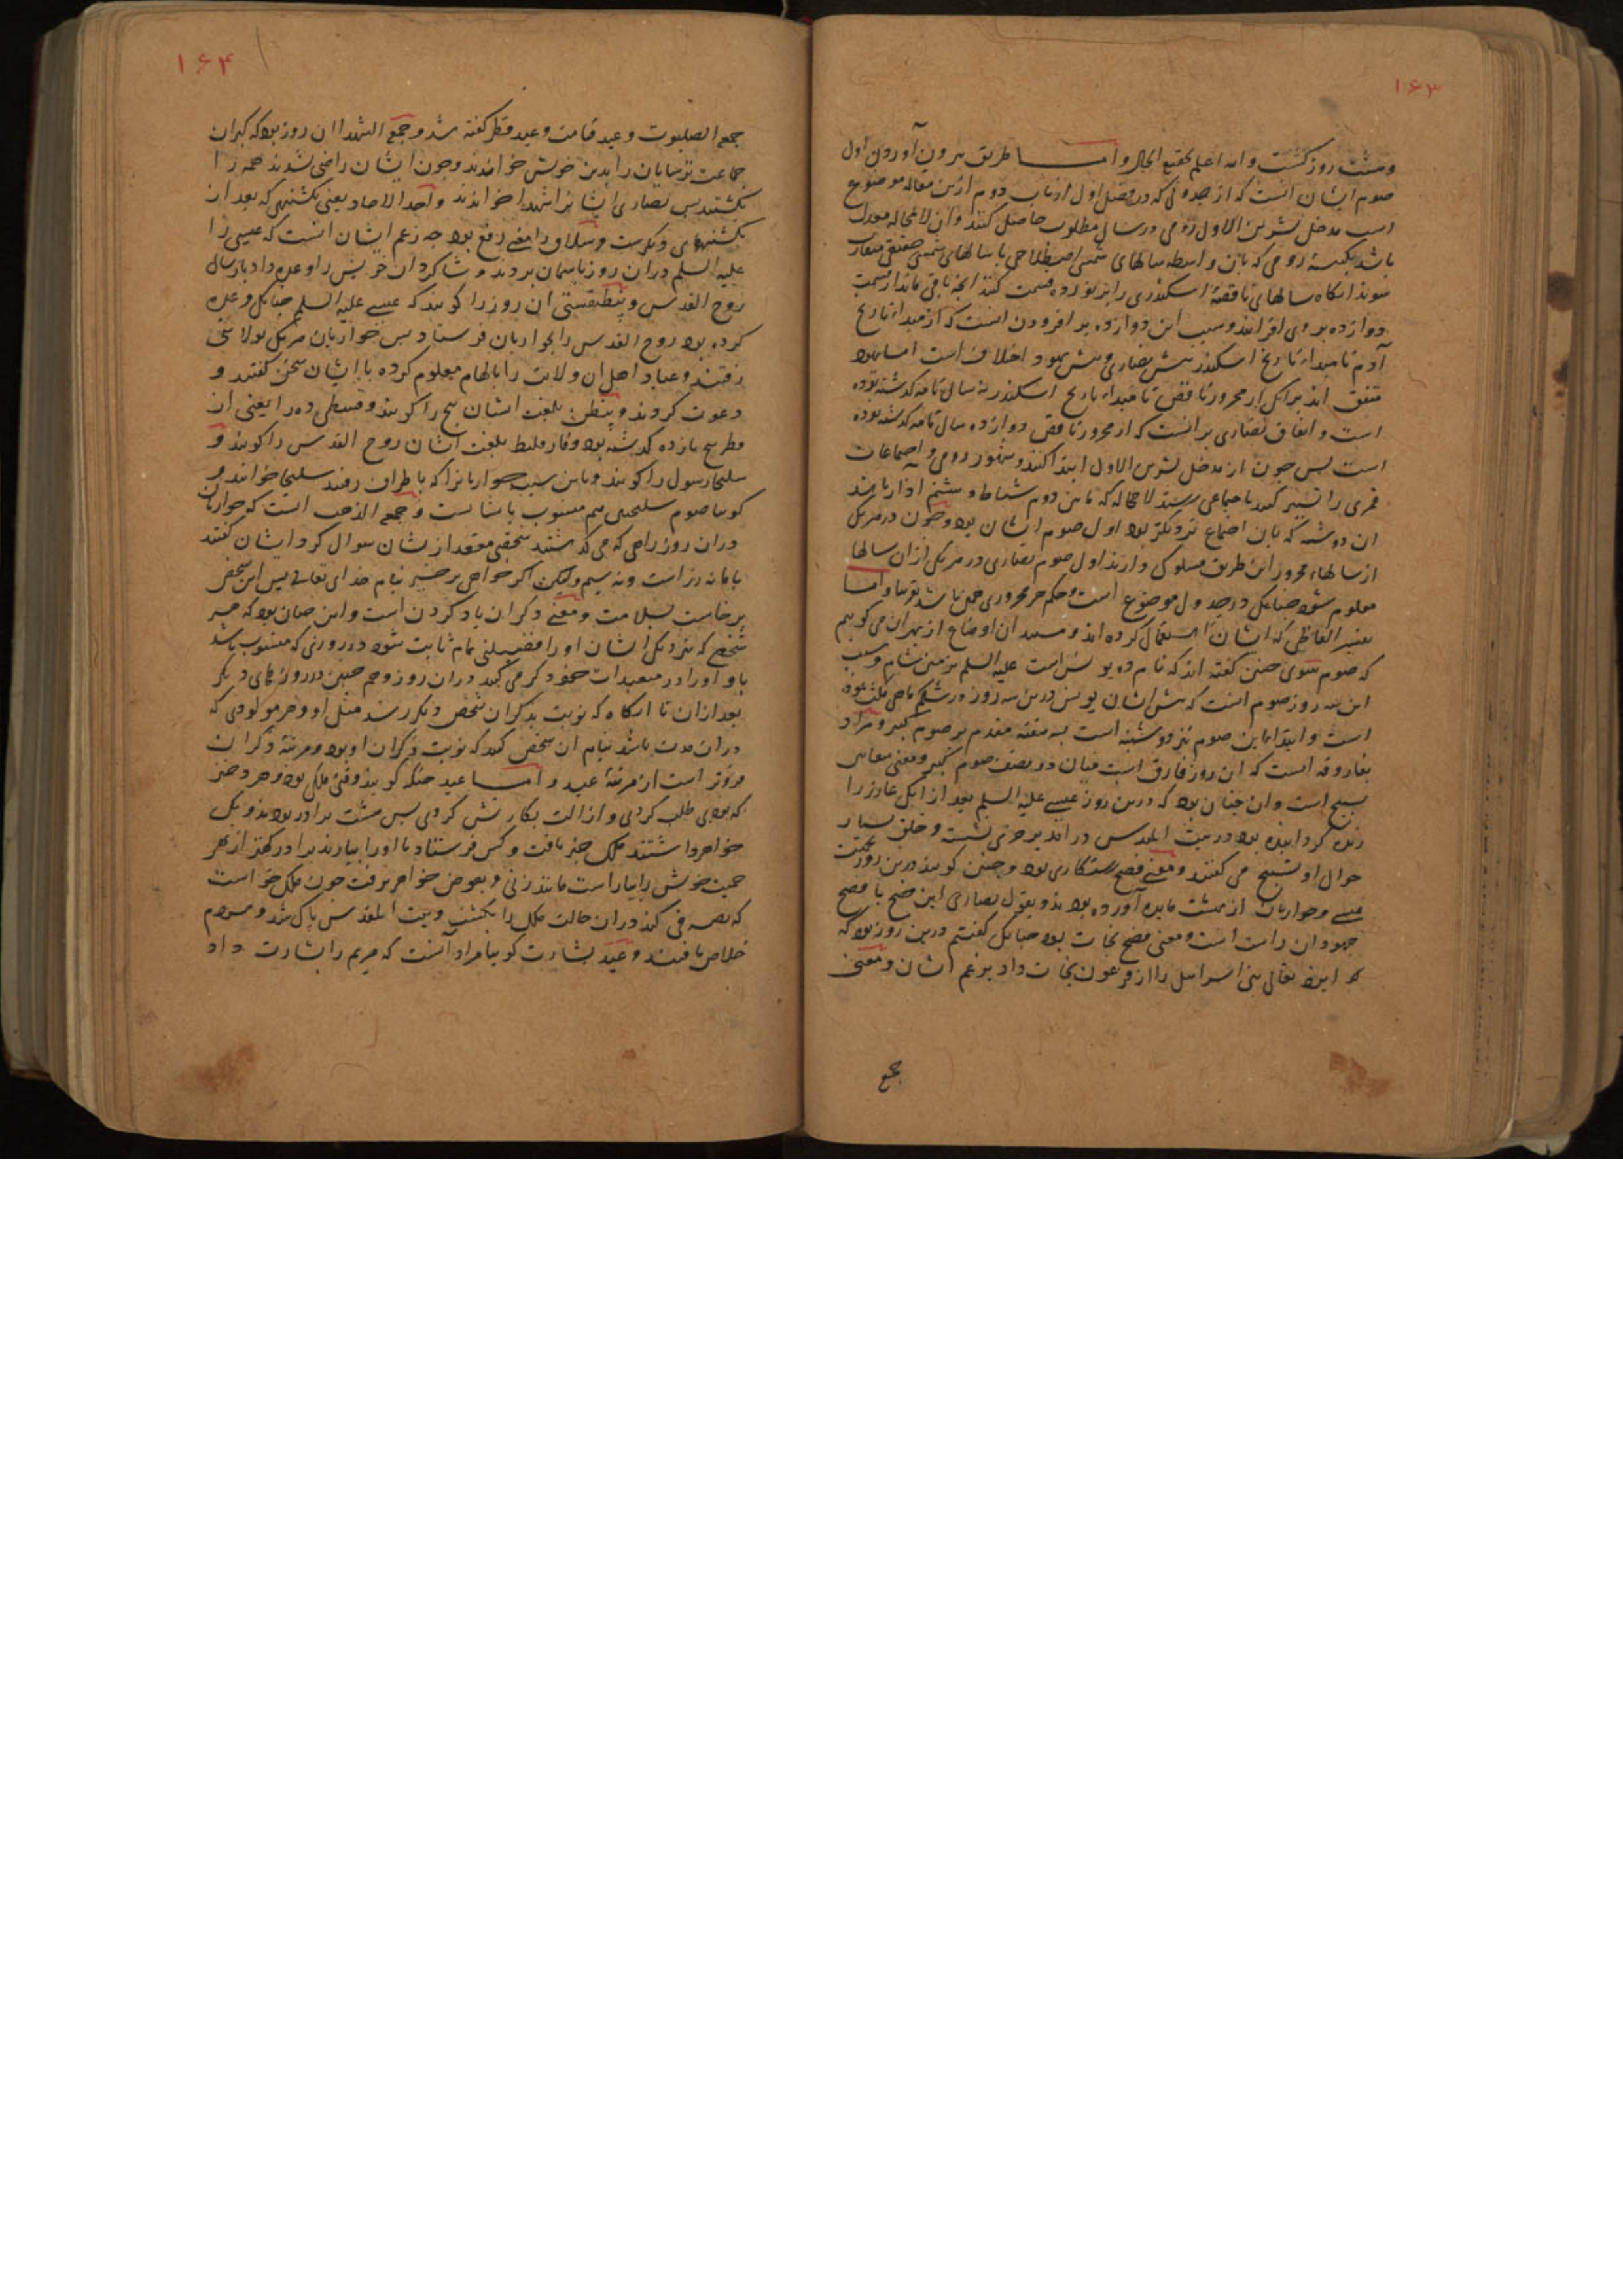 ۱۶۳
ومشت روز کشت والله اعلم بحقیقة الحال واما طریق بیرون آوردن اول
صوم ایشان انست که از جدولی که در فصل اول از باب دوم ازین مقاله موضوع
است مدخل تشرین الاول رومی در سال مطلوب حاصل کنند وان لا محاله معدل
باشد بکبیسهٔ رومی که بان واسطه سالهای شمسی اصطلاحی با سالهای شمسی حقیقی متقارب
شوند انکاه سالهای ناقصهٔ اسکندری را بر نوزده قسمت کنند انچه باقی ماند از قسمت
دوازده بروی افزایند وسبب این دوازده بر افزودن انست که از مبداء تاریخ
آدم تا مبداء تاریخ اسکندر پیش نصاری و پیش یهود اختلاف است اما یهود
متفق اند بر انکه از محزور ناقص تا مبداء تاریخ اسکندر نه سال تامه کذشته بوده
است و اتفاق نصاری بر انست که از محزور ناقص دوازده سال تامه کذشته بوده
است پس چون از مدخل تشرین الاول ابتدا کنند وشهور رومی و اجتماعات
قمری را تسییر کنند تا اجتماعی رسند لا محاله که مابین دوم شباط و هشتم اذار باشد
ان دوشنبه که بان اجتماع نزدیکتر بود اول صوم ایشان بود و چون در هر یکی
از سالهاء محزور این طریق مسلوک دارند اول صوم نصاری در هر یکی از ان سالها
معلوم شود چنانکه در جدول موضوع است و حکم هر محزوری همان باشد تو بتو واما
تفسیر الفاظی که ایشان استعمال کرده اند و سبب ان اوضاع از بهر ان می کوییم
که صوم نینوی چنین کفته اند که نام ده یونس است علیه السلم بزمین شام و سبب
این سه روز صوم انست که پیش ایشان یونس درین سه روز در شکم ماهی مکث بوده
است و ابتدا باین صوم نیز دوشنبه است بسه هفته مقدم بر صوم کبیر و مراد
بفاروقه انست که ان روز فارق است میان دو نصف صوم کبیر و معنی سعانین
تسبیح است وان چنان بود که درین روز عیسی علیه السلم بعد از انکه عازر را
زنده کردانیده بود در بیت المقدس در امد بر خری نشسته و خلق بسیار
حوالی او تسبیح می کفتند و معنی فصح رستکاری بود و چنین کویند درین روز بجهت
عیسی و حواریان از بهشت مایده آورده بودند و بقول نصاری این فصح با فصح
جهودان راست است و معنی فصح نجات بود چنانکه کفتیم درین روز بود که
که ایزد تعالی بنی اسرائیل را از فرعون نجات داد بزعم ایشان و معنی
جمع
۱۶۴
جمعة الصلبوت و عید قیامت و عید فطر کفته شد و جمعة الشهدا ان روز بود که کبران
جماعت ترسایان را بدین خویش خواندند و چون ایشان راضی نشدند همه را
بکشتند پس نصاری ایشانرا شهدا خواندند و احد الاحاد یعنی یکشنبهی که بعد از
یکشنبهای دیکرست و سلاق را معنی رفع بود چه زعم ایشان انست که عیسی را
علیه السلم دران روز باسمان بردند و شاکردان خویش را وعده داد بارسال
روح القدس و پنطیقسطی ان روز را کویند که عیسی علیه السلم چنانکه وعده
کرده بود روح القدس را بحواریان فرستاد پس حواریان هر یکی بولایتی
رفتند و عباد اهل ان ولایت را بالهام معلوم کرده با ایشان سخن کفتند و
دعوت کردند و پنطی بلغت ایشان پنج را کویند و قسطی ده را یعنی از
فطر پنج بار ده کذشته بود و فارقلیط بلغت ایشان روح القدس را کویند و
سلیحا رسول را کویند و باین سبب حواریانرا که باطراف رفتند سلیحا خوانند و
کویند صوم سلیحین هم منسوب بایشانست و جمعة الذهب انست که حواریان
دران روز راهی که می کذشتند شخصی مقعد از ایشان سوال کرد ایشان کفتند
با ما نه زر است و نه سیم ولیکن اکر خواهی برخیز بنام خدای تعالی پس این شخص
برخاست بسلامت و معنی ذکران یاد کردن است و این چنان بود که هر
شخصی که نزدیک ایشان او را فضیلتی تمام ثابت شود در روزی که منسوب باشد
باو او را در متعبدات خود ذکر می کنند دران روز و هم چنین در روزهای دیکر
بعد ازان تا انکاه که نوبت بذکران شخصی دیکر رسد مثل او و هر مولودی که
دران مدت باشد بنام ان شخص کنند که نوبت ذکران او بود و مرتبهٔ ذکران
فروتر است از مرتبهٔ عید و اما عید حنکه کویند وقتی ملکی بود و هر دختر
که بودی طلب کردی و ازالت بکارتش کردی پس هشت برادر بودند و یک
خواهر داشتند ملک خبر یافت و کس فرستاد تا او را بیارند برادر کهتر از بهر
حمیت خویش را بیاراست مانند زنی و بعوض خواهر برفت چون ملک خواست
که تصرفی کند دران حالت ملک را بکشت و بیت المقدس پاک شد و مردم
خلاص یافتند و عید بشارت کویند مراد آنست که مریم را بشارت داد